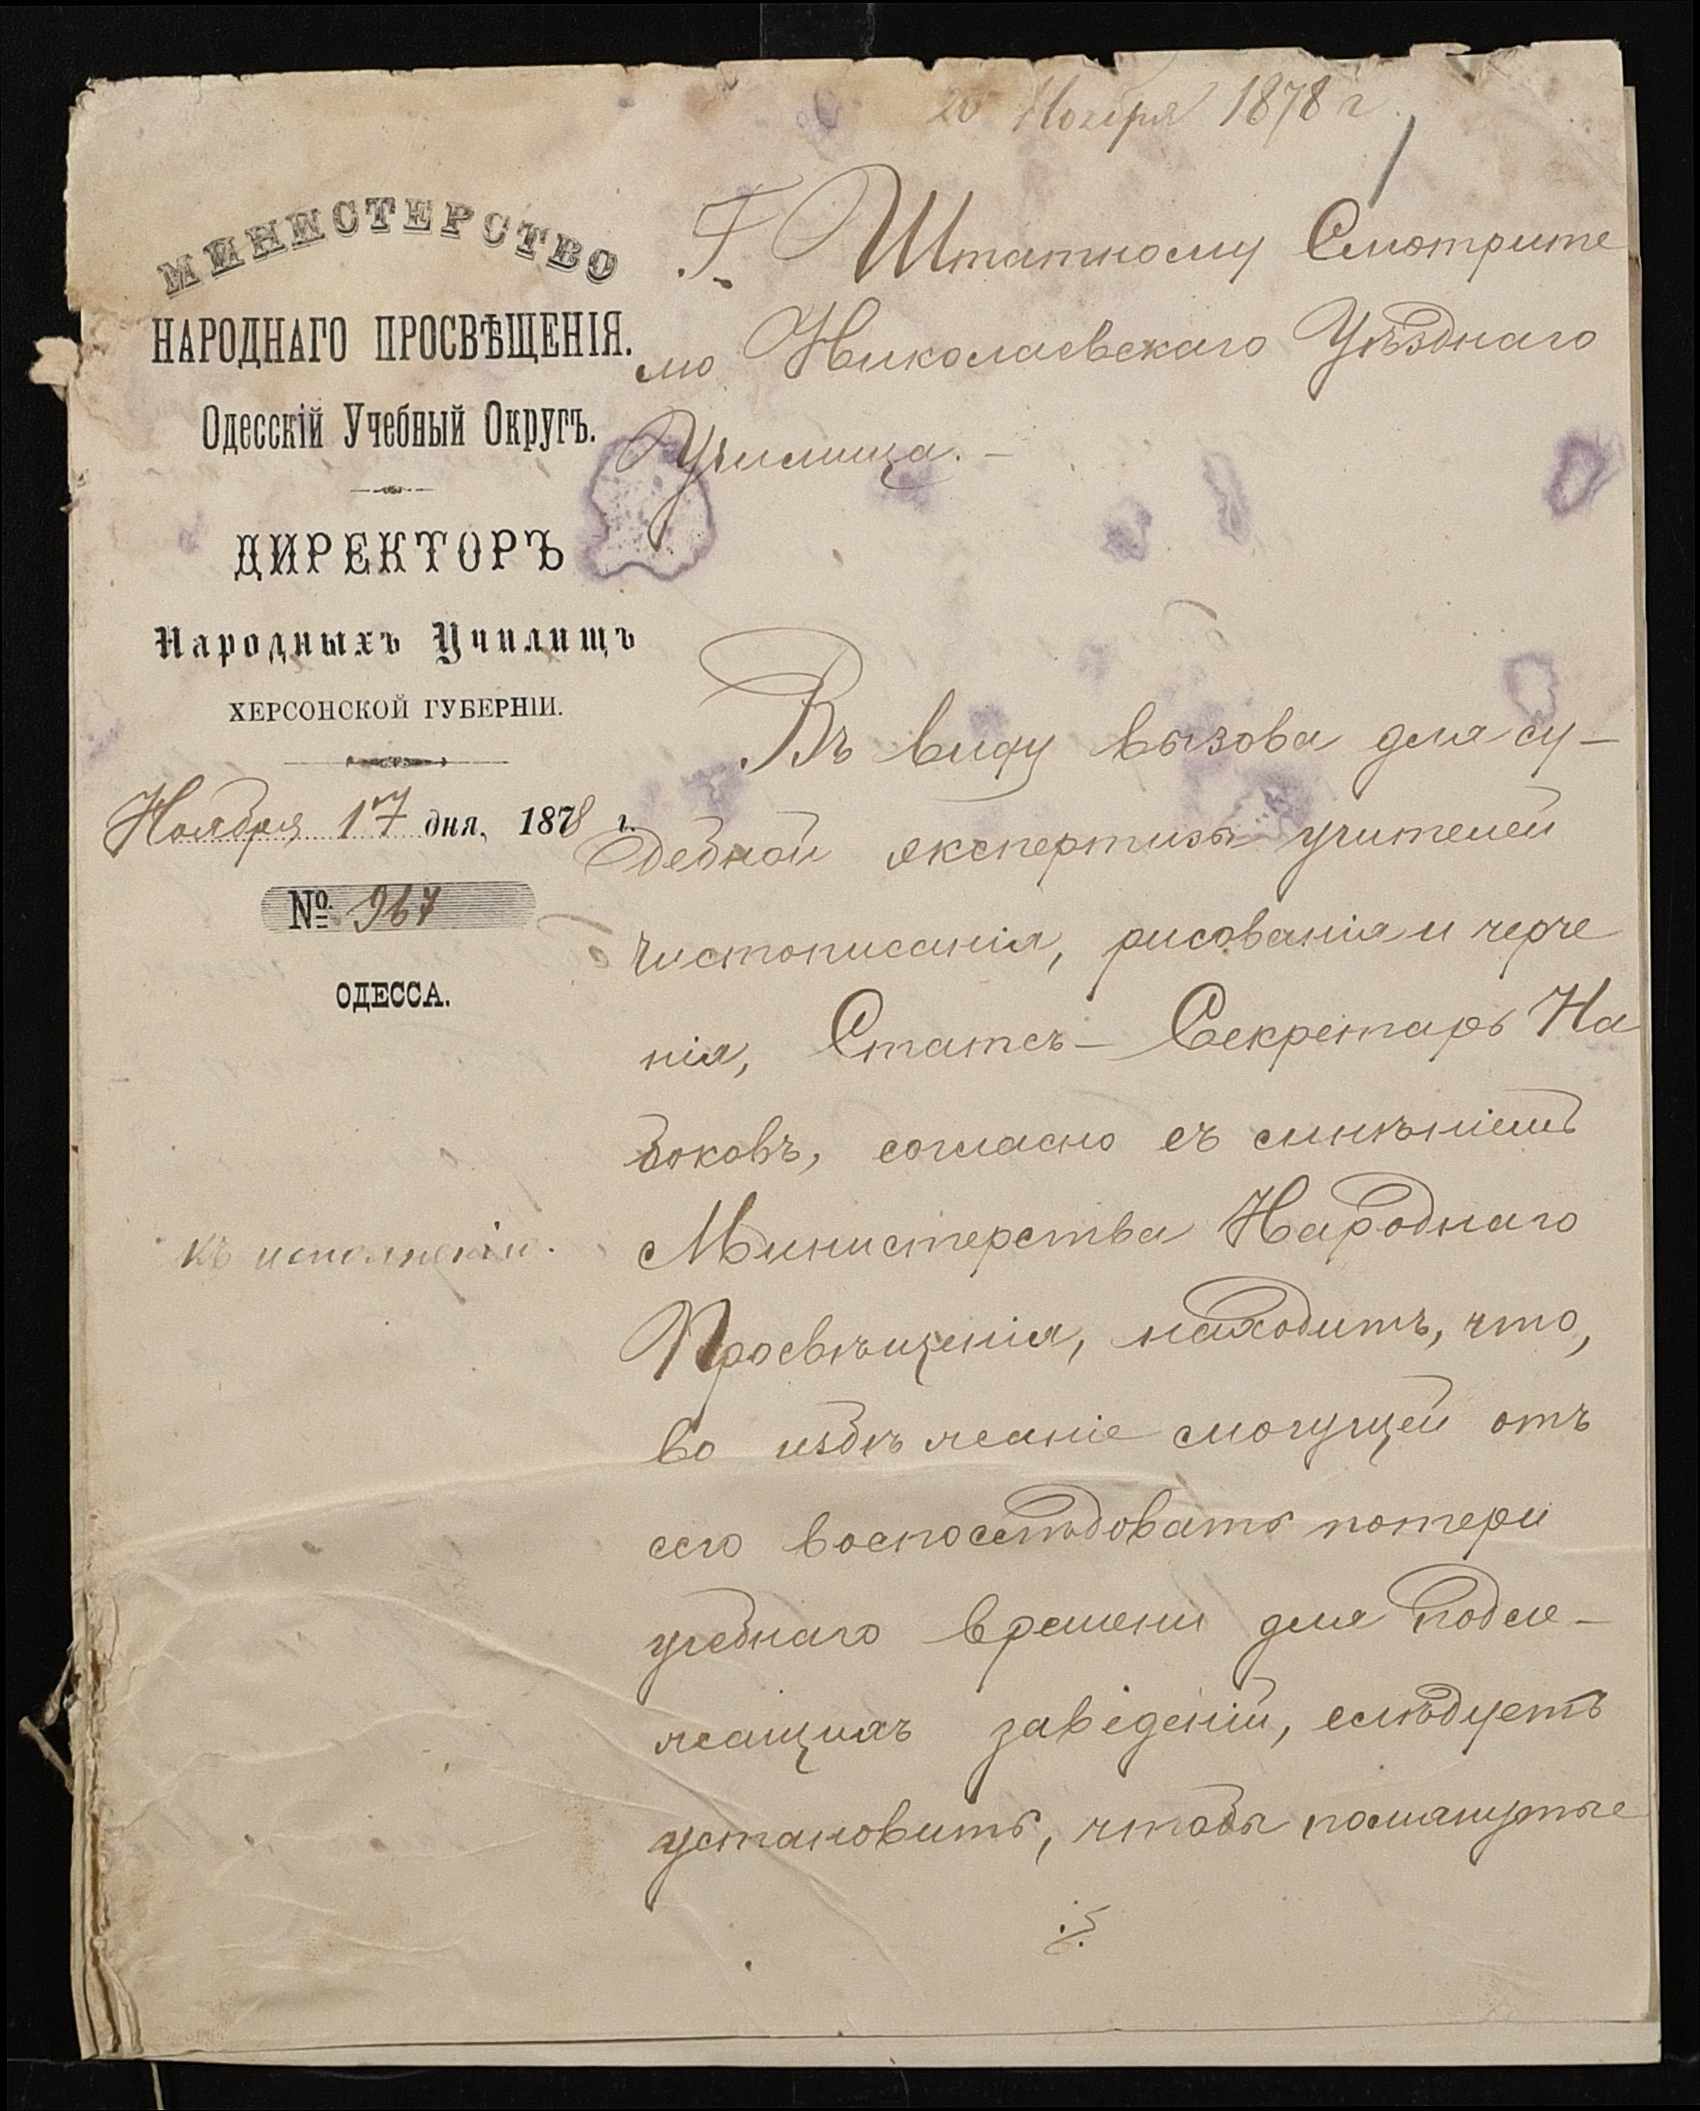 20 Ноября 1878 г.
МИНИСТЕРСТВО
НАРОДНАГО ПРОСВѢЩЕНІЯ.
Одесскій Учебный Округъ.
ДИРЕКТОРЪ
Народныхъ Училищъ
ХЕРСОНСКОЙ ГУБЕРНІИ.
Ноября 17 дня, 1878 г.
№ 967
ОДЕССА.
къ исполненію.
Г. Штатному Смотрите
лю Николаевскаго Уѣзднаго
Училища. –
Въ виду вызова для су–
дебной экспертизы учителей
чистописанія, рисованія и черче
нія, Статсъ–Секретарь На
боковъ, согласно съ мнѣніемъ
Министерства Народнаго
Просвѣщенія, находитъ, что,
во избѣжаніе могущей отъ
сего воспослѣдовать потери
учебнаго времени для подле–
жащихъ заведеній, слѣдуетъ
установить, чтобы помянутые